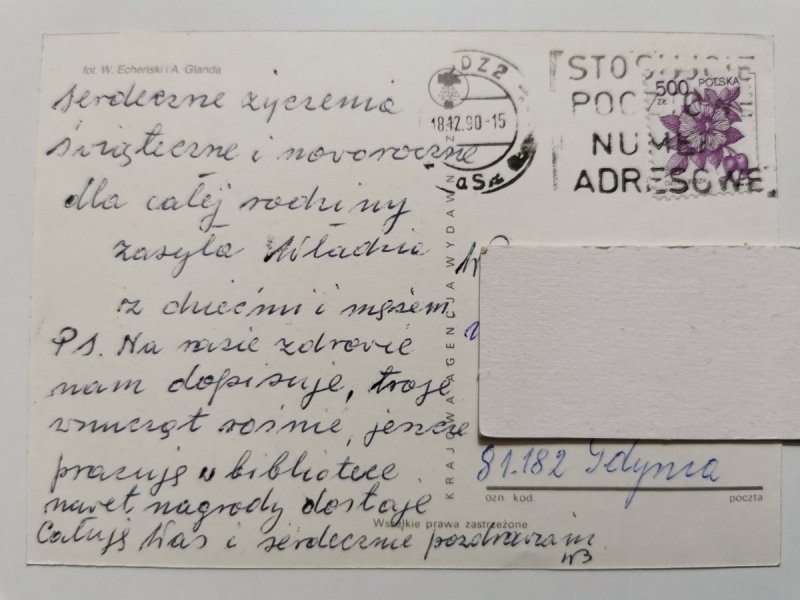 fot. W. Echeński i A. Glanda
serdeczne życzenia
świąteczne i noworoczne
dla całej rodziny
zasyła Władzia
z dziećmi i mężem
PS. Na razie zdrowie
nam dopisuje, troje
wnucząt rośnie, jeszcze
pracuję w bibliotece
nawet nagrody dostaję
Całuję Was i serdecznie pozdrawiam
WB
KRAJOWA AGENCJA WYDAWN
DZ 2
18.12.90-15
STOSUJCIE
NUMER
ADRESOWE
500
ZŁ
POLSKA
81.182 Gdynia
ozn. kod.
poczta
Wszelkie prawa zastrzeżone